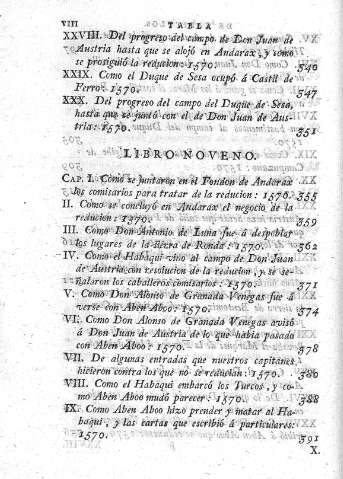 VIII TABLA
XXVIII. Del progreso del campo de Don Juan de
Austria hasta que se alojó en Andarax, y como
se prosiguió la reducion: 1570. 340
XXIX. Como el Duque de Sesa ocupó á Castil de
Ferro: 1570. 347
XXX. Del progreso del campo del Duque de Sesa,
hasta que se juntó con el de Don Juan de Aus-
tria: 1570. 351
LIBRO NOVENO.
CAP. I. Como se juntaron en el Fondon de Andarax
los comisarios para tratar de la reducion: 1570. 355
II. Como se concluyó en Andarax el negocio de la
reducion: 1570. 359
III. Como Don Antonio de Luna fue á despoblar
los lugares de la sierra de Ronda: 1570. 362
IV. Como el Habaqui vino al campo de Don Juan
de Austria con resolucion de la reducion, y se se-
ñalaron los caballeros comisarios: 1570. 371
V. Como Don Alonso de Granada Venegas fue á
verse con Aben Aboo: 1570. 374
VI. Como Don Alonso de Granada Venegas avisó
á Don Juan de Austria de lo que habia pasado
con Aben Aboo: 1570. 378
VII. De algunas entradas que nuestros capitanes
hicieron contra los que no se reducian: 1570. 380
VIII. Como el Habaqui embarcó los Turcos, y co-
mo Aben Aboo mudó parecer: 1570. 388
IX. Como Aben Aboo hizo prender y matar al Ha-
baqui, y las cartas que escribió á particulares:
1570. 391
X.